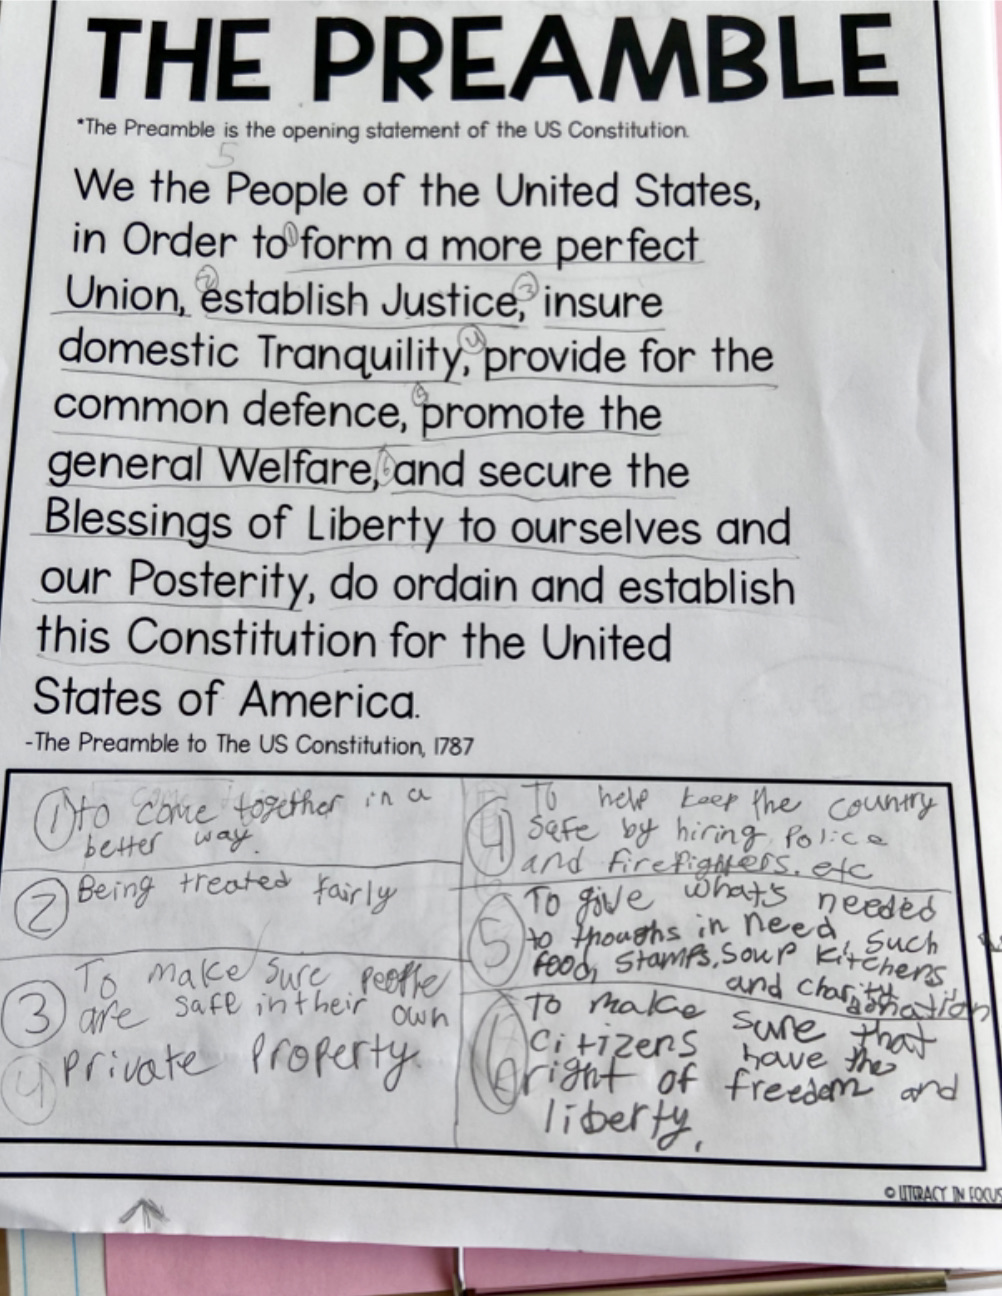 THE PREAMBLE
*The Preamble is the opening statement of the US Constitution.
5
We the People of the United States,
in Order to ① form a more perfect
Union, ② establish Justice, ③ insure
domestic Tranquility, ④ provide for the
common defence, ⑤ promote the
general Welfare, ⑥ and secure the
Blessings of Liberty to ourselves and
our Posterity, do ordain and establish
this Constitution for the United
States of America.
-The Preamble to The US Constitution, 1787
① to come together in a
better way.
② Being treated fairly
③ To make sure people
are safe in their own
④ private property.
④ To help keep the country
safe by hiring police
and firefighters. etc
⑤ To give what's needed
to thoughs in need, such
food, stamps, soup kitchens,
and charity
donation
⑥ To make sure that
citizens have the
right of freedom and
liberty.
© LITERACY IN FOCUS